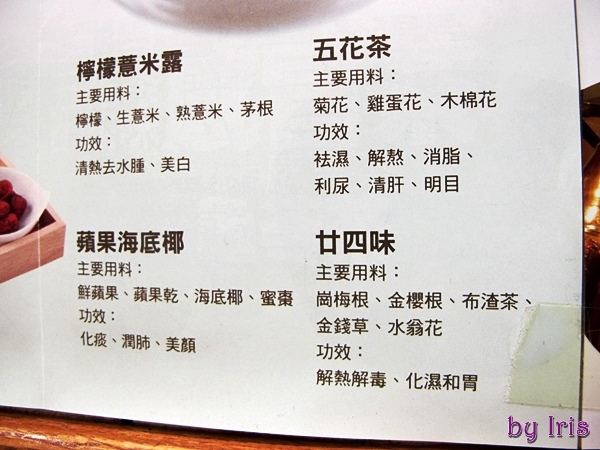 檸檬薏米露
主要用料：
檸檬、生薏米、熟薏米、茅根
功效：
清熱去水腫、美白
五花茶
主要用料：
菊花、雞蛋花、木棉花
功效：
袪濕、解熬、消脂、
利尿、清肝、明目
蘋果海底椰
主要用料：
鮮蘋果、蘋果乾、海底椰、蜜棗
功效：
化痰、潤肺、美顏
廿四味
主要用料：
崗梅根、金櫻根、布渣茶、
金錢草、水翁花
功效：
解熱解毒、化濕和胃
by Iris